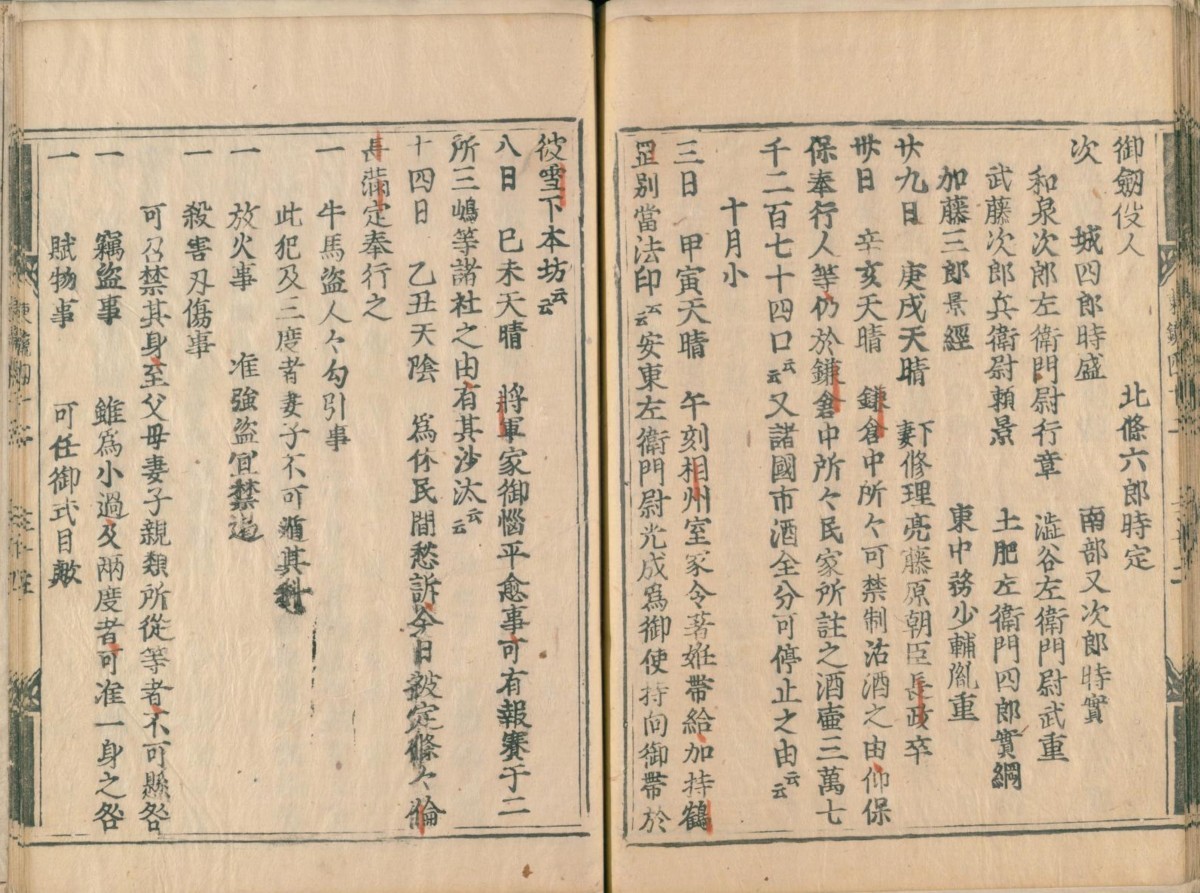 御劔役人
北條六郎時定
次　城四郎時盛　　南部又次郎時實
和泉次郎左衛門尉行章　澁谷左衛門尉武重
武藤次郎兵衛尉頼景　土肥左衛門四郎實綱
加藤三郎景經　　東中務少輔胤重
廿九日　庚戌天晴　下妻修理亮藤原朝臣長政卒
卅日　辛亥天晴　鎌倉中所々可禁制沽酒之由仰保
保奉行人等仍於鎌倉中所々民家所註之酒壷三萬七
千二百七十四口云云又諸國市酒全分可停止之由云云
十月小
三日　甲寅天晴　午刻相州室家令著姙帶給加持鶴
岡別當法印云云安東左衛門尉光成爲御使持向御帶於
彼雪下本坊云云
八日　巳未天晴　將軍家御惱平愈事可有報賽于二
所三嶋等諸社之由有其沙汰云云
十四日　乙丑天陰　爲休民間愁訴今日被定條々倫
長滿定奉行之
一　牛馬盜人々勾引事
此犯及三度者妻子不可遁其科
一　放火事　准強盜宜禁遏
一　殺害刄傷事
可召禁其身至父母妻子親類所從等者不可懸咎
一　竊盜事　雖爲小過及兩度者可准一身之咎
一　賦物事　可任御式目歟